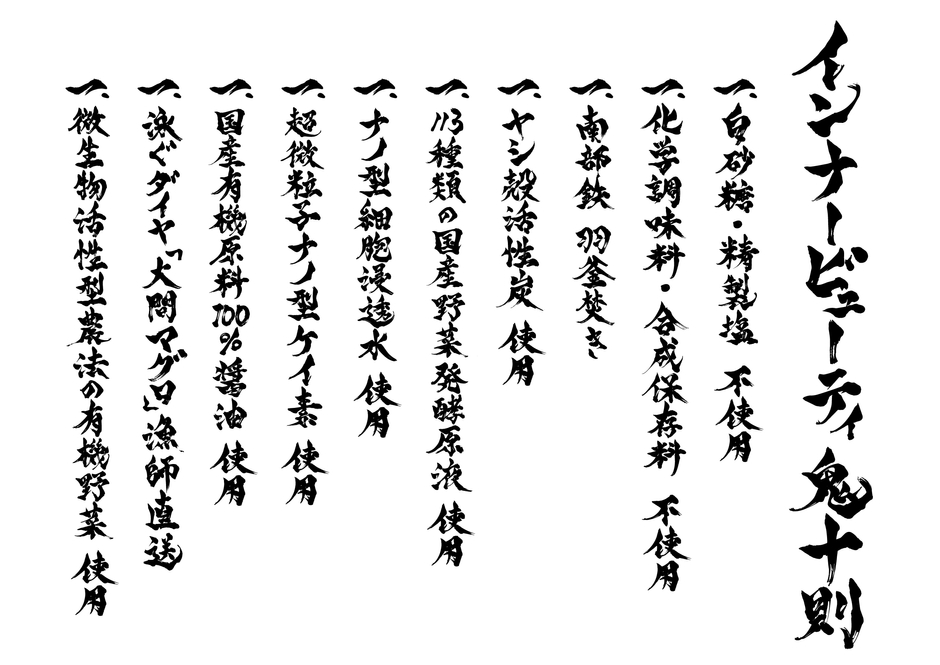 インナービューティ 鬼十則
一、白砂糖・精製塩 不使用
一、化学調味料・合成保存料 不使用
一、南部鉄 羽釜焚き
一、ヤシ殻活性炭 使用
一、113種類の国産野菜発酵原液 使用
一、ナノ型細胞浸透水 使用
一、超微粒子ナノ型ケイ素 使用
一、国産有機原料100%醤油 使用
一、泳ぐダイヤ「大間マグロ」漁師直送
一、微生物活性型農法の有機野菜 使用